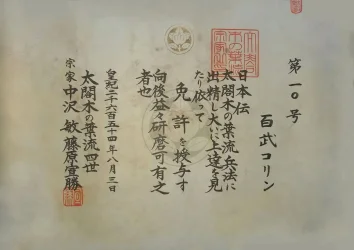 第一〇号
百武コリン
日本伝
太閤木の葉流兵法に
出精し大いに上達を見
たり依って
免許を授与す
向後益々研磨可有之
者也
皇紀二千六百五十四年八月三日
太閤木の葉流四世
宗家中沢敏藤原宣勝